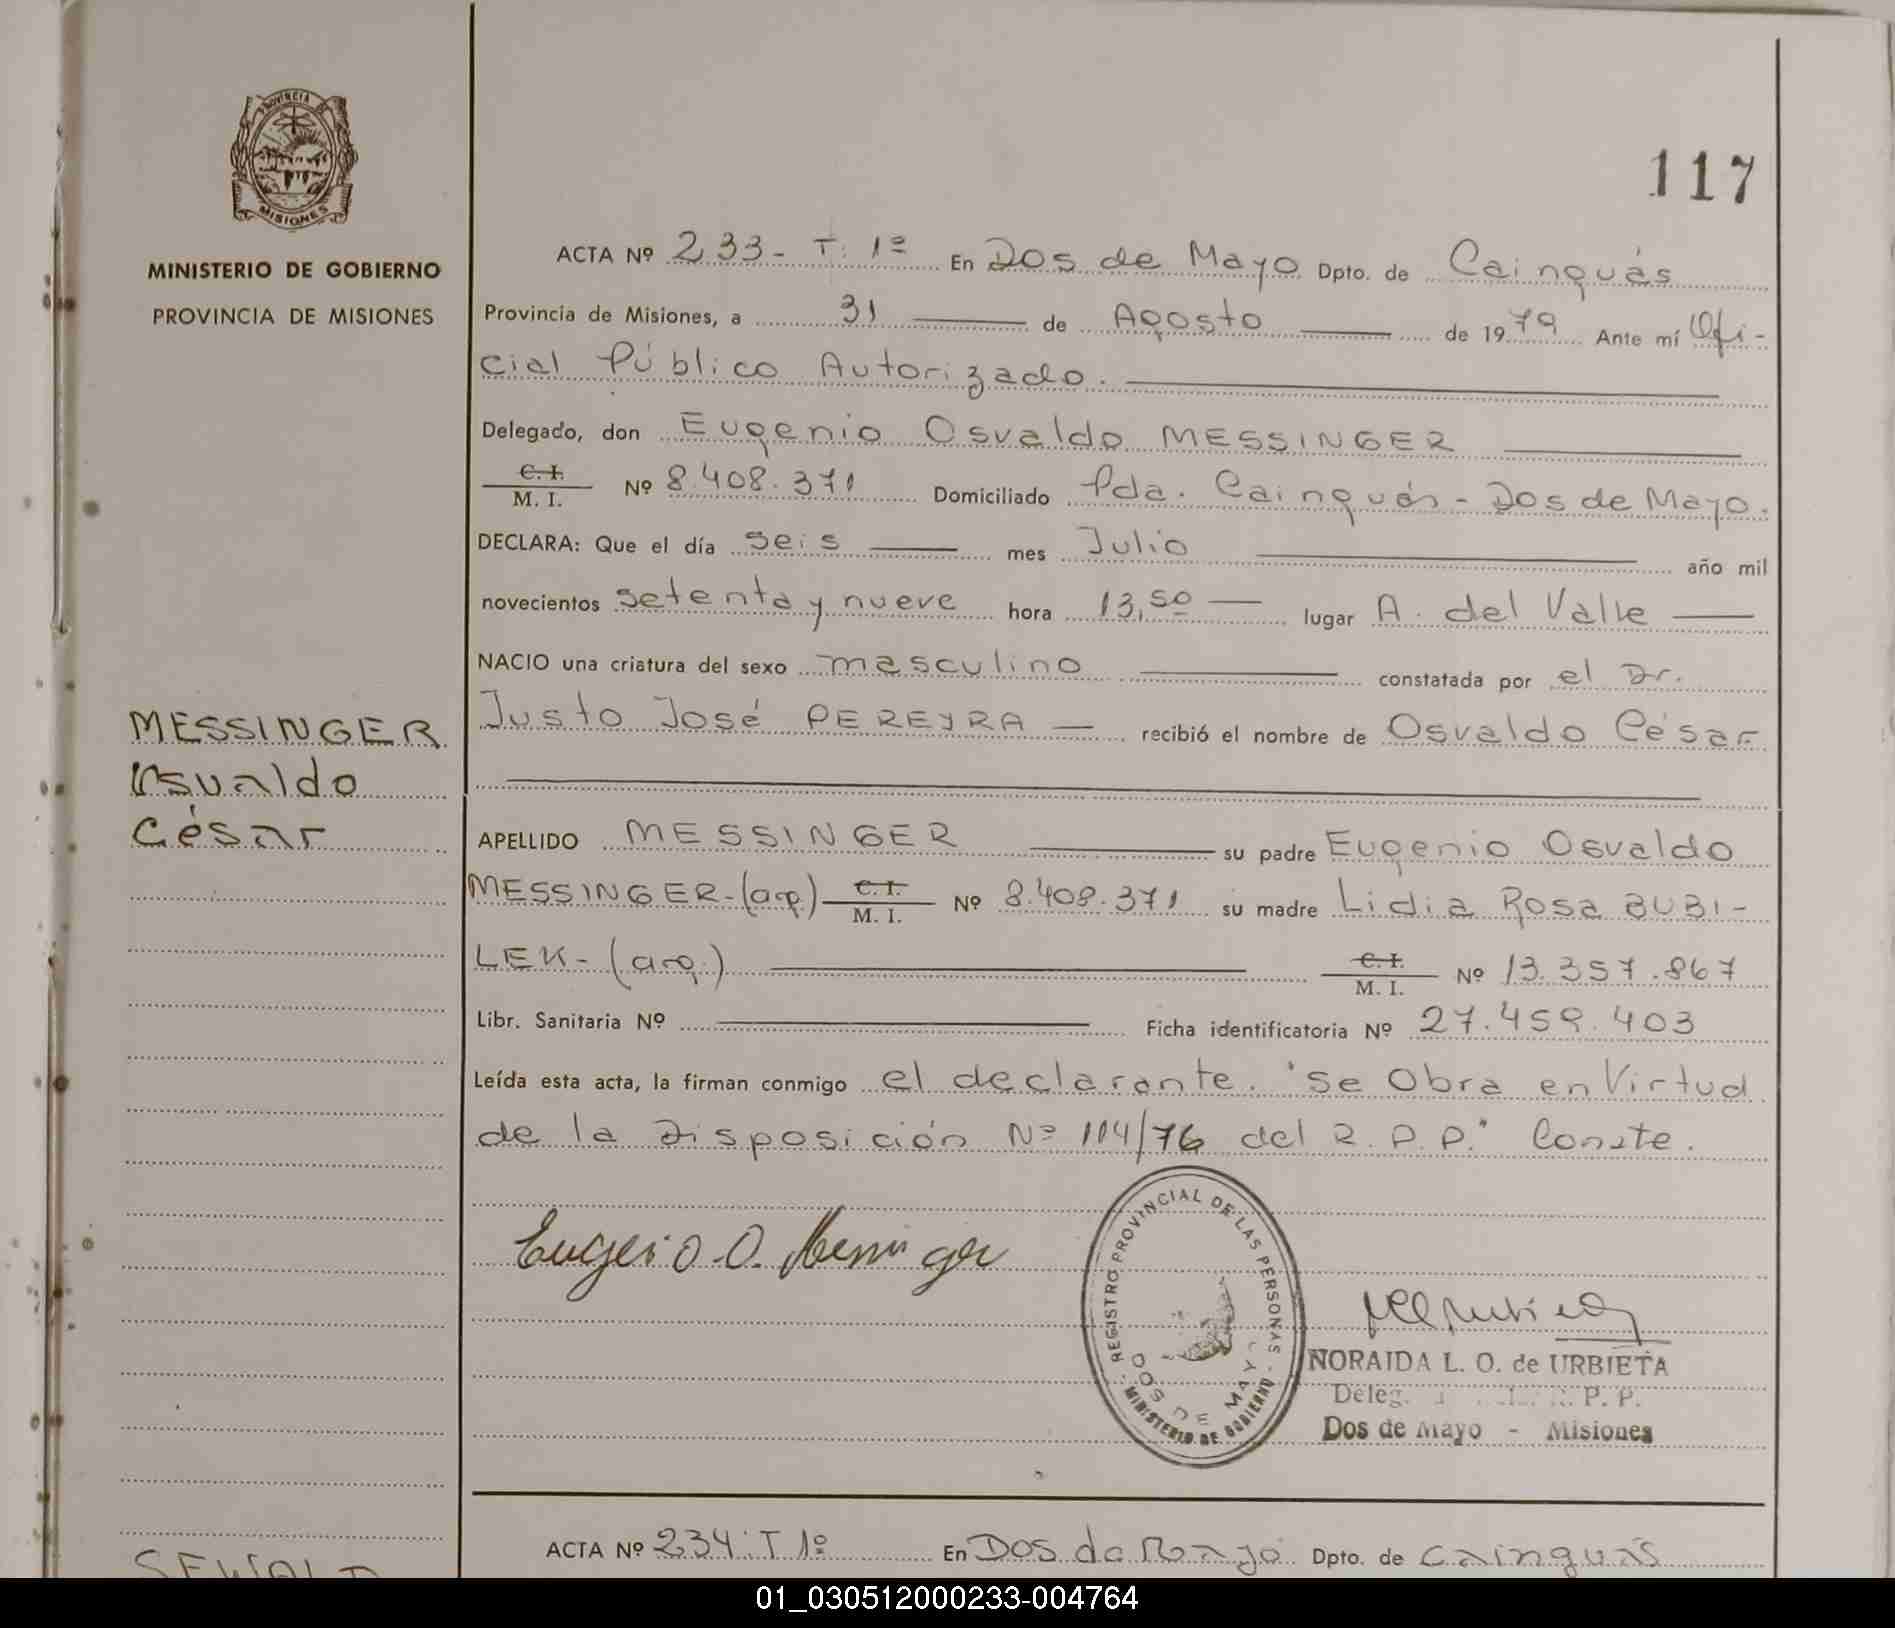 PROVINCIA DE
MISIONES
MINISTERIO DE GOBIERNO
PROVINCIA DE MISIONES
117
ACTA Nº 233- T: 1º En Dos de Mayo Dpto. de Cainguás
Provincia de Misiones, a 31 de Agosto de 1979 Ante mí Ofi-
cial Público Autorizado.
Delegado, don Eugenio Osvaldo MESSINGER
C. I.
M. I. Nº 8.408.371 Domiciliado Pda. Cainguás - Dos de Mayo.
DECLARA: Que el día seis mes Julio año mil
novecientos setenta y nueve hora 13,50 lugar A. del Valle
NACIO una criatura del sexo masculino constatada por el Dr.
Justo José PEREYRA recibió el nombre de Osvaldo César
MESSINGER
Osvaldo
César
APELLIDO MESSINGER su padre Eugenio Osvaldo
MESSINGER-(arg.) C. I.
M. I. Nº 8.408.371 su madre Lidia Rosa BUBI-
LEK-(arg.) C. I.
M. I. Nº 13.357.867
Libr. Sanitaria Nº Ficha identificatoria Nº 27.459.403
Leída esta acta, la firman conmigo el declarante. "Se Obra en Virtud
de la Disposición Nº 114/76 del R.P.P." Conste.
Eugenio O. Messinger
REGISTRO PROVINCIAL DE LAS PERSONAS
DOS DE MAYO
MINISTERIO DE GOBIERNO
NORAIDA L. O. de URBIETA
Deleg. P. P.
Dos de Mayo - Misiones
ACTA Nº 234: T 1º En Dos de Mayo Dpto. de Cainguás
01_030512000233-004764